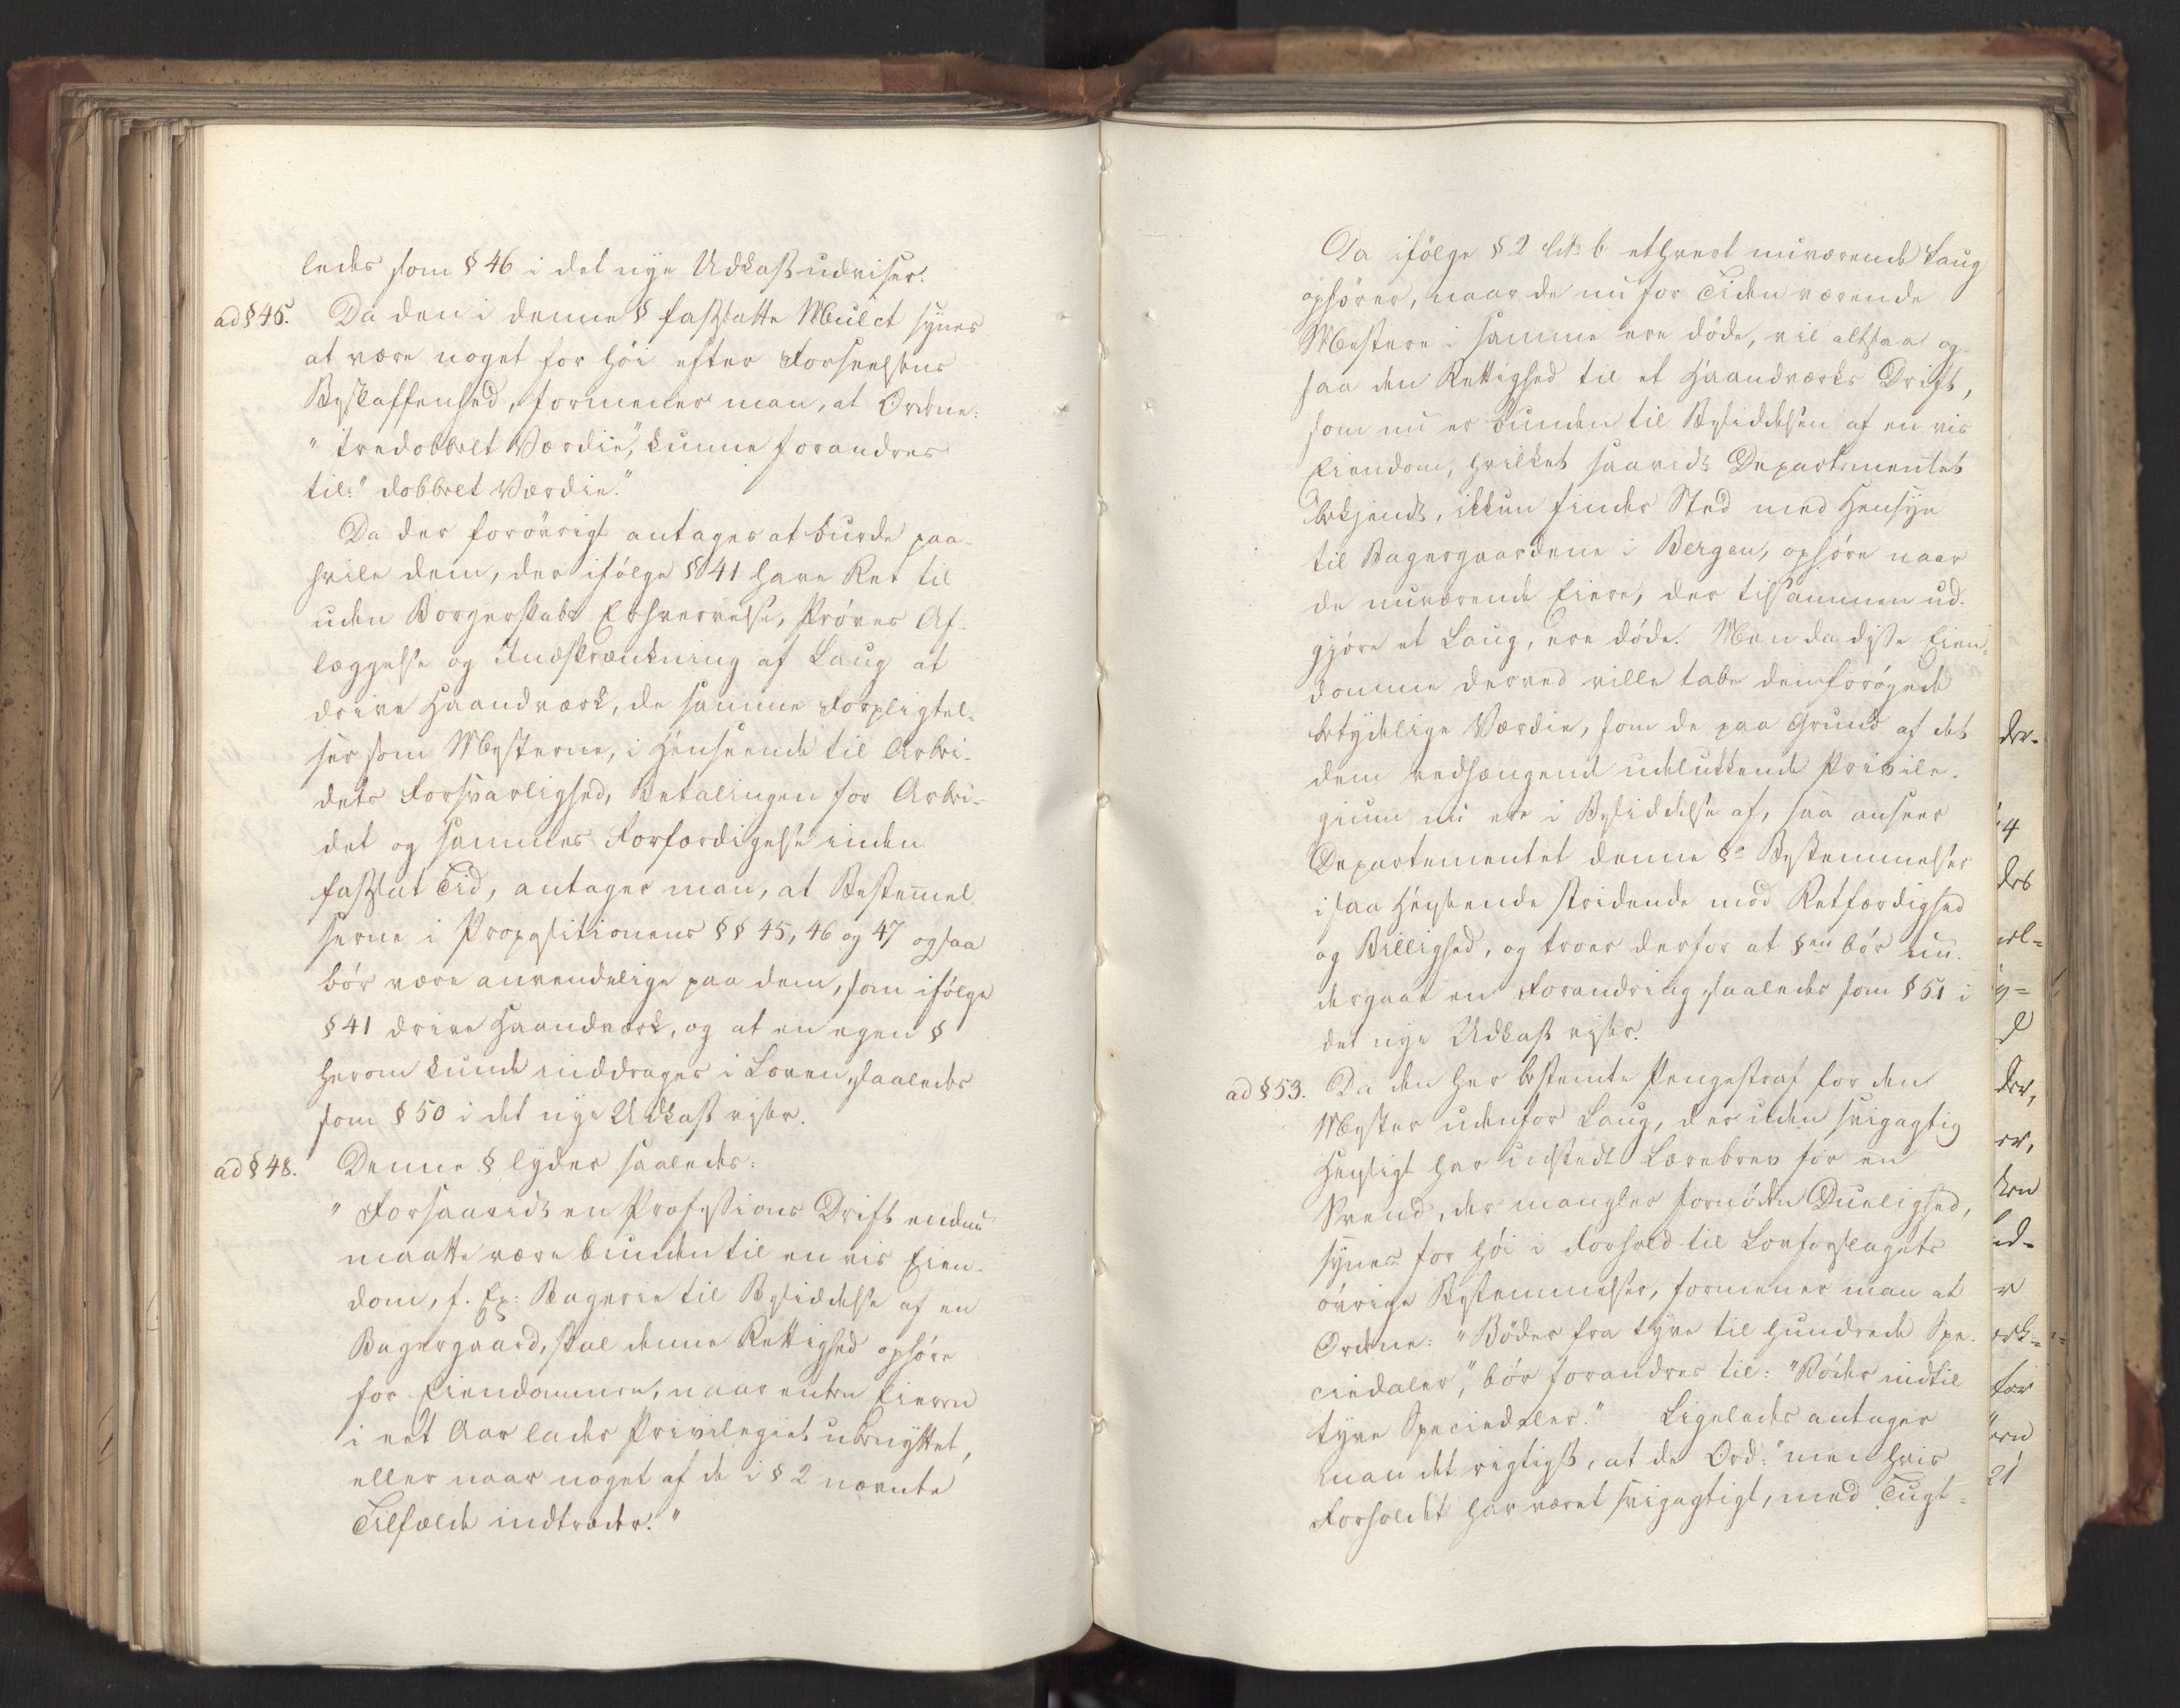 ledes som § 46 i det nye Udkast udviser.
ad § 45. Da den i denne § fastsatte Mulct synes
at være noget for höi efter Forseelsens
Beskaffenhed, formener man, at Ordene:
"tredobbelt Værdie", kunne forandres
til: "dobbelt Værdie."
Da der forövrigt antages at burde paa-
hvile dem, der ifölge § 41 have Ret til
uden Borgerskabs Erhvervelse, Pröves Af-
læggelse og Indskrænkning af Laug at
drive Haandværk, de samme Forpligtel-
ser som Mesterne, i Henseende til Arbei-
dets Forsvarlighed, Betalingen for Arbei-
det og sammes Forfærdigelse inden
fastsat Tid, antager man, at Bestemel-
serne i Propositionens §§ 45, 46 og 47 ogsaa
bör være anvendelige paa dem, som ifölge
§ 41 drive Haandværk, og at en egen §
herom kunde inddrages i Loven, saaledes
som § 50 i det nye Udkast viser.
ad § 48. Denne § lyder saaledes:
"Forsaavidt en Professions Drift endnu
maatte være bunden til en vis Eien-
dom, f. Ex: Bagerie til Besiddelse af en
Bagergaard, skal denne Rettighed ophöre
for Eiendommen, naar enten Eieren
i eet Aar lader Privilegiet ubenyttet,
eller naar noget af de i § 2 nævnte
Tilfælde indtræder."
Da ifölge § 2 Litr. b ethvert nuværende Laug
ophörer, naar de nu for Tiden værende
Mestere i samme ere döde, vil altsaa og-
saa den Rettighed til et Haandværks Drift,
som nu er bunden til Besiddelsen af en vis
Eiendom, hvilket saavidt Departementet
bekjendt, ikkun finder Sted med Hensyn
til Bagergaardene i Bergen, ophöre naar
de nuværende Eiere, der tilsammen ud-
gjöre et Laug, ere döde. Men da disse Eien-
domme derved ville tabe den forögede
betydelige Værdie, som de paa Grund af det
dem vedhængende udelukkende Privile-
gium nu ere i Besiddelse af, saa anseer
Departementet denne §s Bestemmelser
i saa Henseende stridende mod Retfærdighed
og Billighed, og troer derfor at §en bör un-
dergaae en Forandring, saaledes som § 51 i
det nye Udkast viser.
ad § 53. Da den her bestemte Pengestraf for den
Mester udenfor Laug, der uden svigagtig
Hensigt har udstedt Lærebrev for en
Svend, der mangler fornöden Duelighed,
synes for höi i Forhold til Lovforslagets
övrige Bestemmelser, formener man at
Ordene: "Böder fra tyve til hundrede Spe-
ciedaler," bör forandres til: "Böder indtil
tyve Speciedaler." Ligeledes antager
man det rigtigst, at de Ord: "men hvis
Forholdet har været svigagtigt, med Tugt-